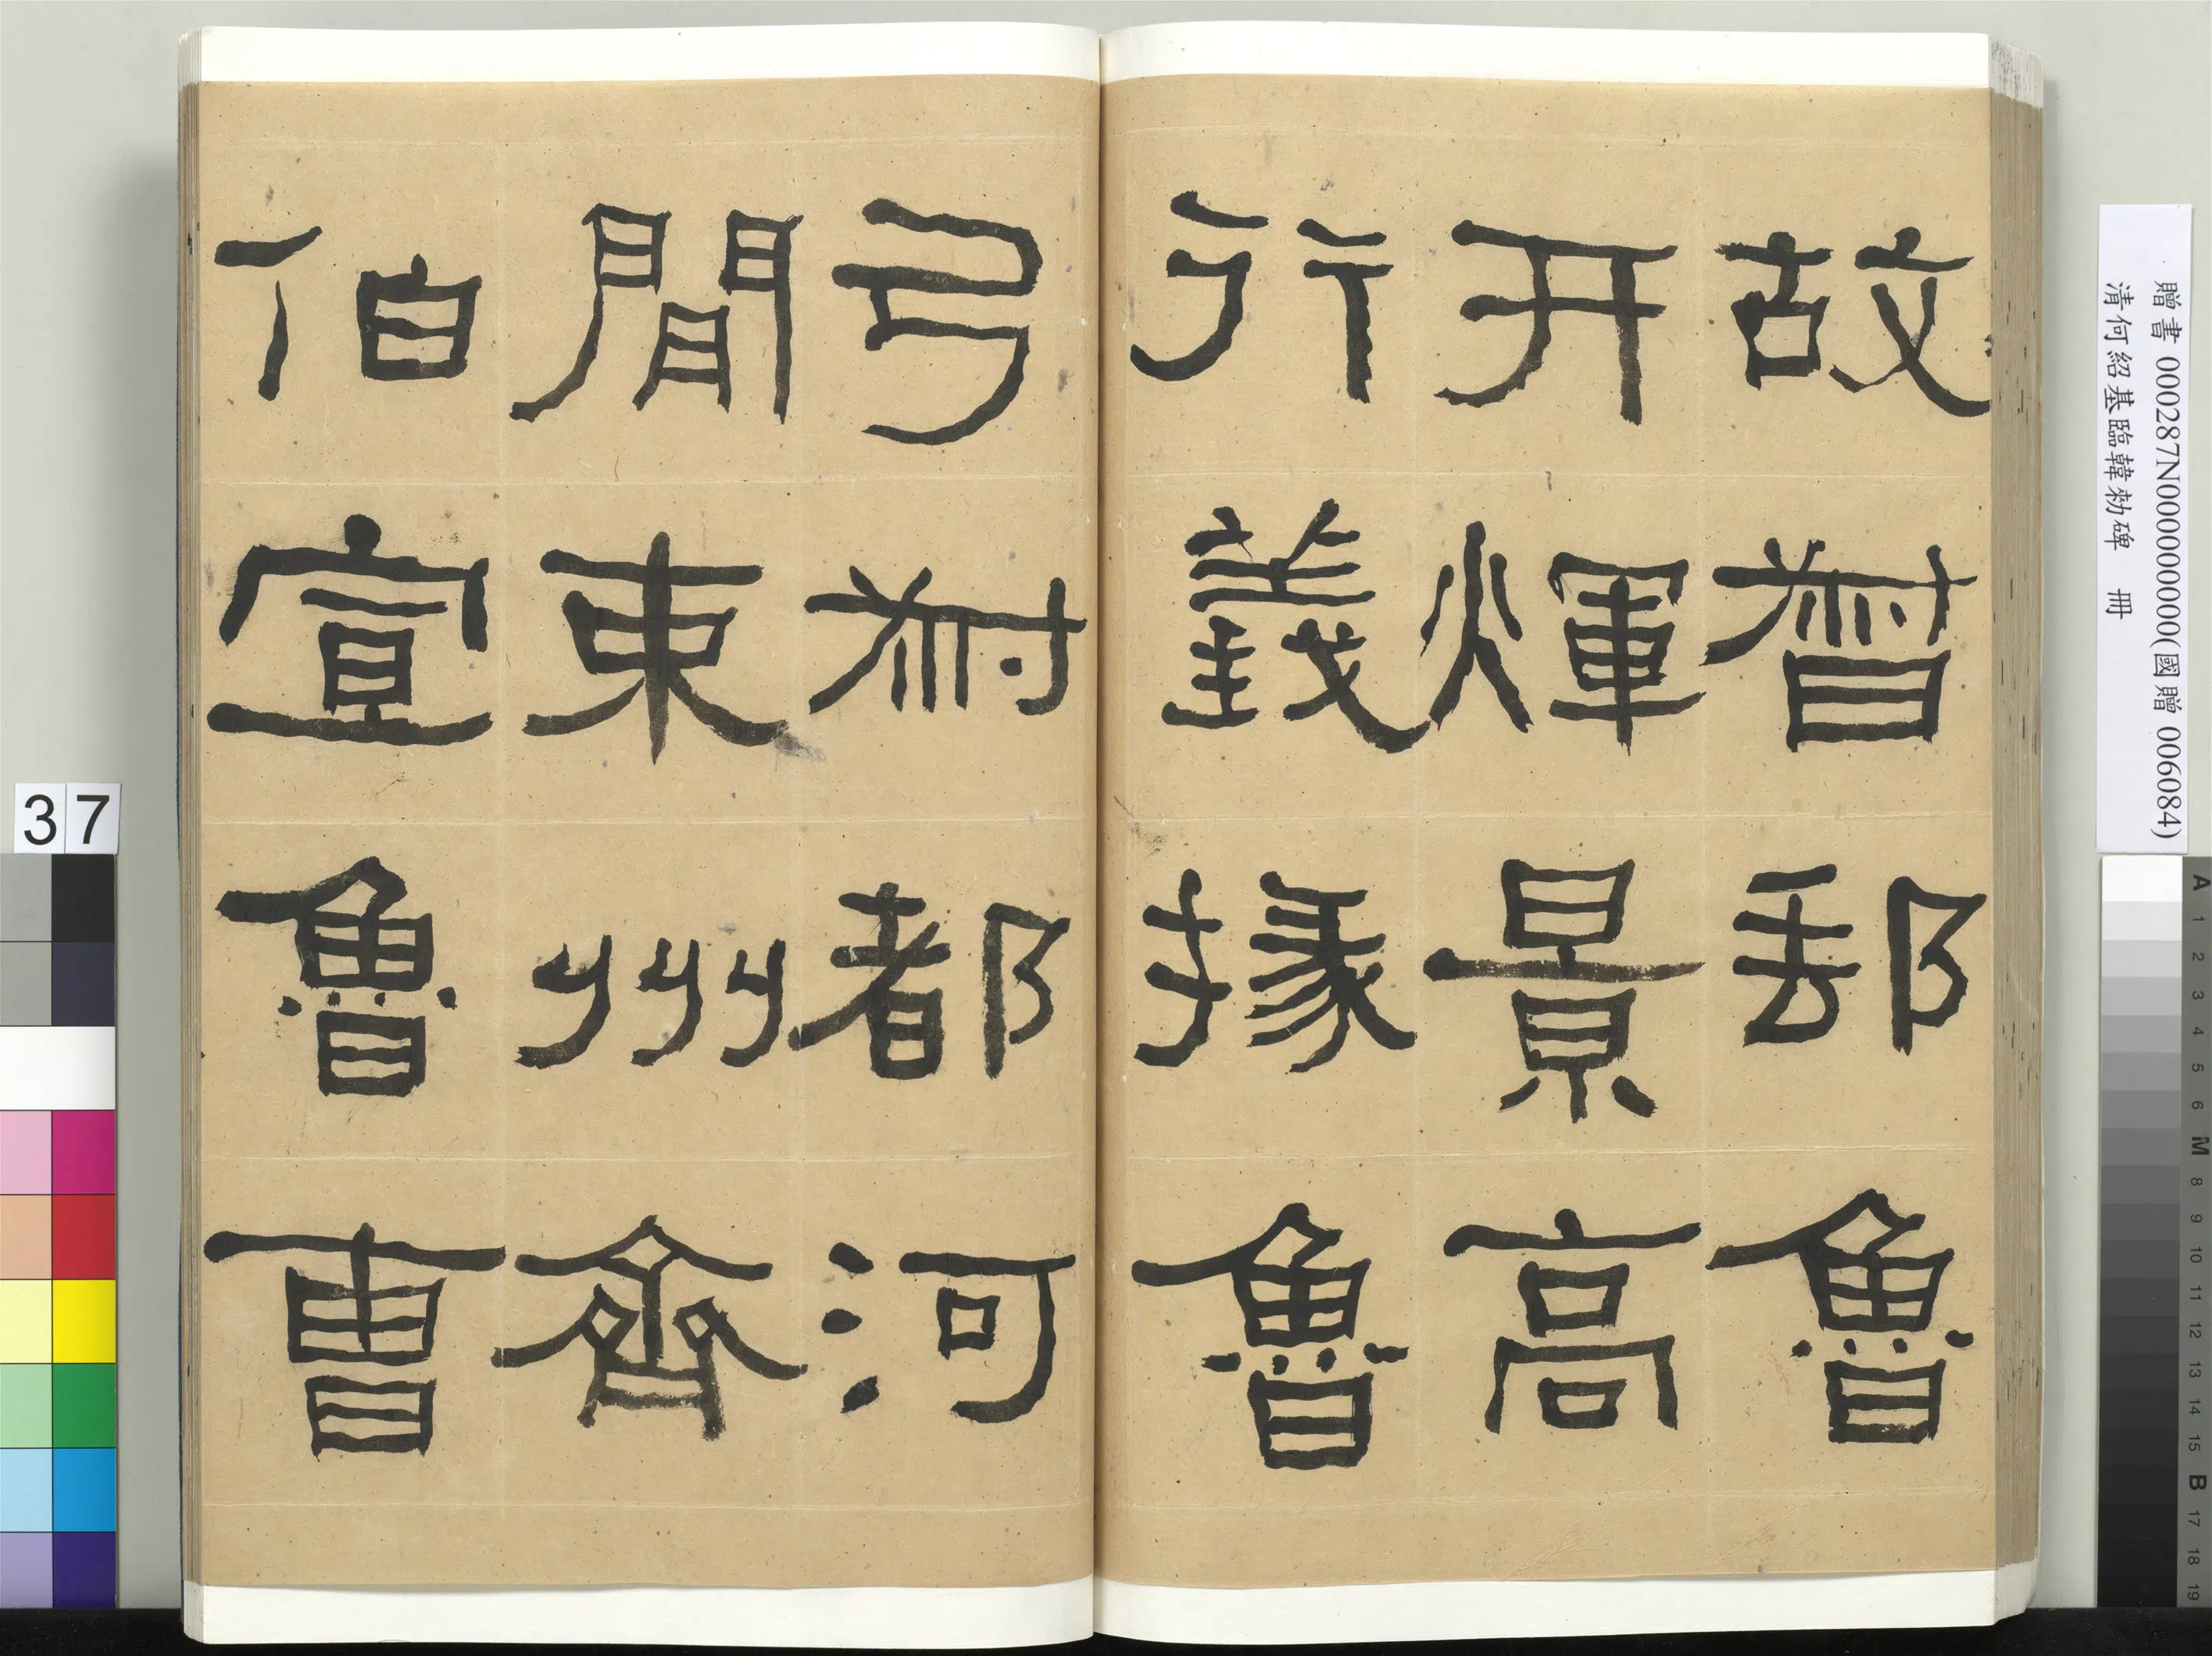 故督郵魯
开煇景高
行義掾魯
弓叔都河
間東州齊
伯宣魯曹
贈書 000287N000000000(國贈 006084)
清何紹基臨韓勑碑 冊
37
A 1 2 3 4 5 6 M 8 9 10 11 12 13 14 15 B 17 18 19